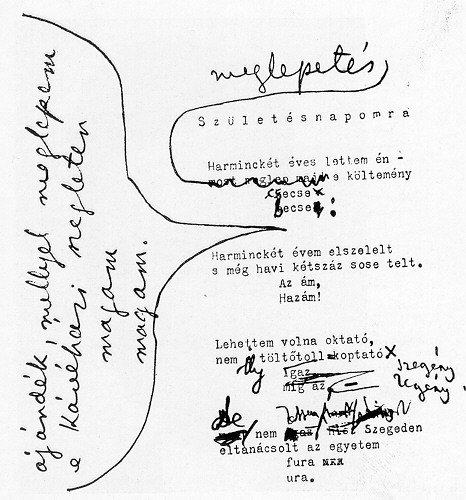 meglepetés
Születésnapomra
Harminckét éves lettem én -
most meglep e költemény
csecse
becse:
ajándék, mellyel meglepem
e kávéházi szegleten
magam
magam.
Harminckét évem elszelelt
s még havi kétszáz sose telt.
Az ám,
Hazám!
Lehettem volna oktató,
nem ily töltőtoll koptató
szegény
legény,
igaz
míg az
De nem Szegeden
eltanácsolt az egyetem
fura
ura.